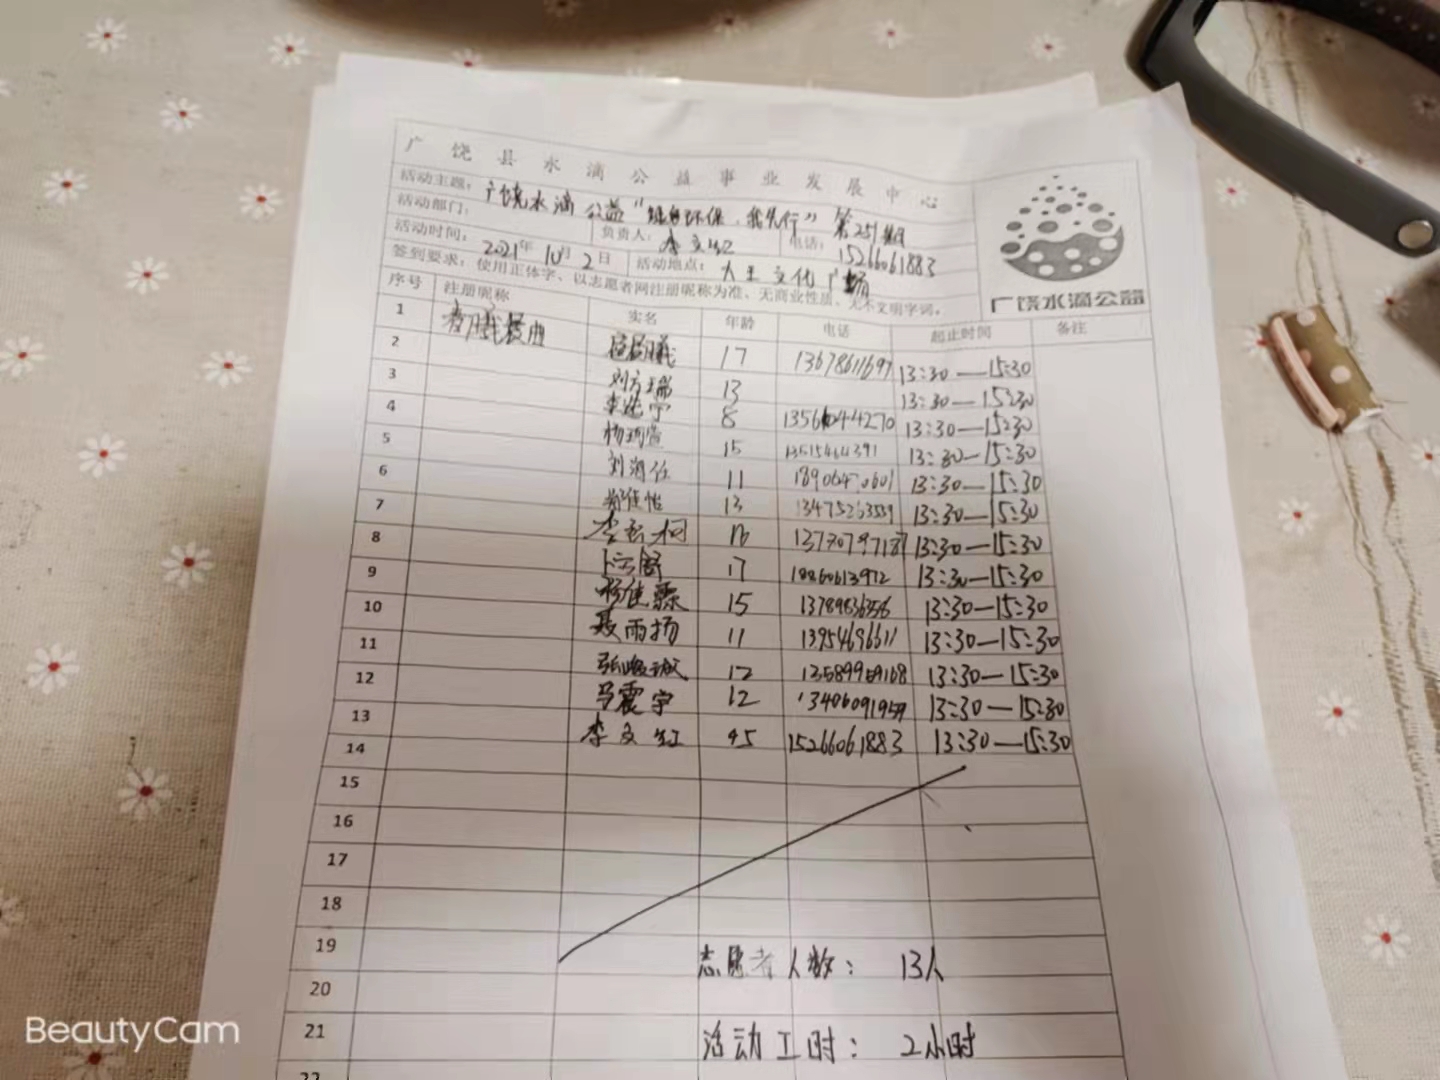 广饶县水滴公益事业发展中心
活动主题：广饶水滴公益“绿色环保，我先行”第251期
活动部门： 负责人：李文红 电话：15266061883
活动时间：2021年10月2日 活动地点：大王文化广场
签到要求：使用正体字、以志愿者网注册昵称为准、无商业性质、无不文明字词，
广饶水滴公益
序号 注册昵称 实名 年龄 电话 起止时间 备注
1 17 13678611697 13:30—15:30
2 刘方瑞 13 13:30—15:30
3 8 13:30—15:30
4 15 13515464391 13:30—15:30
5 11 13:30—15:30
6 13 13475263559 13:30—15:30
7 16 13:30—15:30
8 17 18860613972 13:30—15:30
9 15 13789836356 13:30—15:30
10 聂雨扬 11 13954696611 13:30—15:30
11 12 13589959168 13:30—15:30
12 马震宇 12 13406091959 13:30—15:30
13 李文红 45 15266061883 13:30—15:30
14
15
16
17
18
19 志愿者人数：13人
20
21 活动工时：2小时
22
BeautyCam